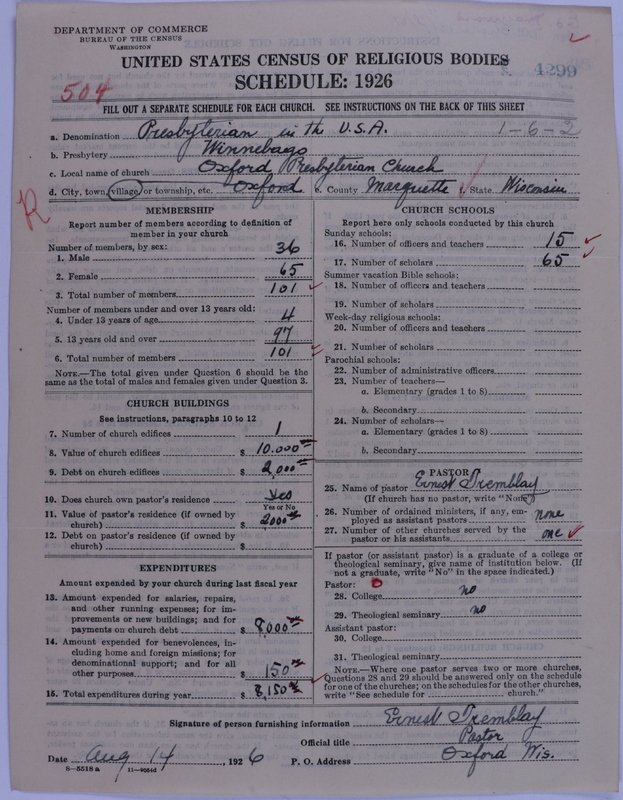 DEPARTMENT OF COMMERCE
BUREAU OF THE CENSUS
WASHINGTON
UNITED STATES CENSUS OF RELIGIOUS BODIES
4299
SCHEDULE: 1926
504
FILL OUT A SEPARATE SCHEDULE FOR EACH CHURCH. SEE INSTRUCTIONS ON THE BACK OF THIS SHEET
a. Denomination Presbyterian in the U.S.A. 1-6-2
b. Presbytery Winnebago
c. Local name of church Oxford Presbyterian Church
d. City, town, village, or township, etc. Oxford e. County Marquette f. State Wisconsin
R
MEMBERSHIP
Report number of members according to definition of
member in your church
Number of members, by sex:
1. Male 36
2. Female 65
3. Total number of members 101
Number of members under and over 13 years old:
4. Under 13 years of age 4
5. 13 years old and over 97
6. Total number of members 101
NOTE.—The total given under Question 6 should be
same as the total of males and females given under Question 3.
CHURCH BUILDINGS
See instructions, paragraphs 10 to 12
7. Number of church edifices 1
8. Value of church edifices $ 10.000
9. Debt on church edifices $ 2,000
10. Does church own pastor's residence Yes
Yes or No
11. Value of pastor's residence (if owned by
church) $ 2000
12. Debt on pastor's residence (if owned by
church) $
EXPENDITURES
Amount expended by your church during last fiscal year
13. Amount expended for salaries, repairs,
and other running expenses; for im-
provements or new buildings; and for
payments on church debt $ 8,000
14. Amount expended for benevolences, in-
cluding home and foreign missions; for
denominational support; and for all
other purposes $ 150
15. Total expenditures during year $ 8,150
CHURCH SCHOOLS
Report here only schools conducted by this church
Sunday schools:
16. Number of officers and teachers 15
17. Number of scholars 65
Summer vacation Bible schools:
18. Number of officers and teachers
19. Number of scholars
Week-day religious schools:
20. Number of officers and teachers
21. Number of scholars
Parochial schools:
22. Number of administrative officers
23. Number of teachers—
a. Elementary (grades 1 to 8)
b. Secondary
24. Number of scholars—
a. Elementary (grades 1 to 8)
b. Secondary
PASTOR
25. Name of pastor Ernest Tremblay
(If church has no pastor, write "None")
26. Number of ordained ministers, if any, em-
ployed as assistant pastors none
27. Number of other churches served by the
pastor or his assistants one
If pastor (or assistant pastor) is a graduate of a college or
theological seminary, give name of institution below. (If
not a graduate, write "No" in the space indicated.)
Pastor:
28. College no
29. Theological seminary no
Assistant pastor:
30. College
31. Theological seminary
NOTE.—Where one pastor serves two or more churches,
Questions 28 and 29 should be answered only on the schedule
for one of the churches; on the schedules for the other churches,
write "See schedule for church."
Signature of person furnishing information Ernest Tremblay
Official title Pastor
Date Aug 14, 1926 P. O. Address Oxford Wis.
8—5518 a